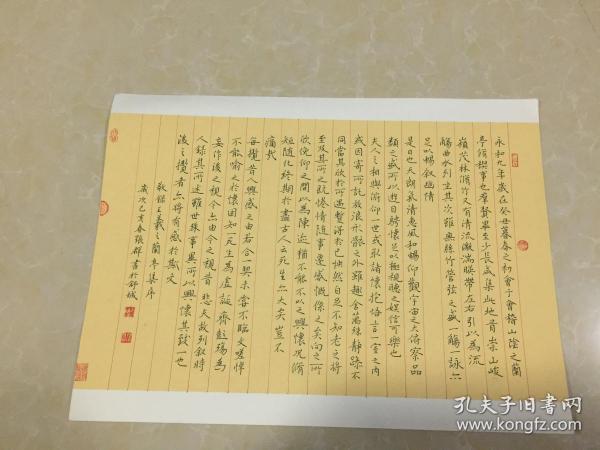 永和九年歲在癸丑暮春之初會于會稽山陰之蘭
亭脩禊事也羣賢畢至少長咸集此地有崇山峻
嶺茂林脩竹又有清流激湍暎帶左右引以為流
觴曲水列坐其次雖無絲竹管弦之盛一觴一詠亦
足以暢叙幽情
是日也天朗氣清惠風和暢仰觀宇宙之大俯察品
類之盛所以遊目騁懷足以極視聽之娛信可樂也
夫人之相與俯仰一世或取諸懷抱悟言一室之內
或因寄所託放浪形骸之外雖趣舍萬殊靜躁不
同當其欣於所遇暫得於己快然自足不知老之將
至及其所之既惓情隨事遷感慨係之矣向之所
欣俛仰之間以為陳迹猶不能不以之興懷況脩
短隨化終期於盡古人云死生亦大矣豈不
痛哉
每攬昔人興感之由若合一契未嘗不臨文嗟悼
不能喻之於懷固知一死生為虛誕齊彭殤為
妄作後之視今亦由今之視昔悲夫故列叙時
人錄其所述雖世殊事異所以興懷其致一也
後之攬者亦將有感於斯文
敬錄王羲之蘭亭集序
歲次乙亥春張群書於舒城
孔夫子旧书网
www.kongfz.com